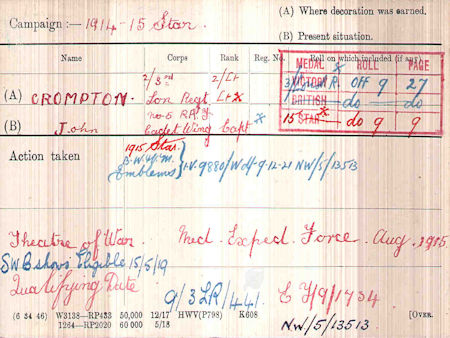 Campaign :— 1914-15 Star.
(A) Where decoration was earned.
(B) Present situation.
Name Corps Rank Reg. No. Roll on which included (if any)
MEDAL ROLL PAGE
VICTORY R. Off 9 27
BRITISH do do
15 STAR do 9 9
2/3rd 2/Lt
(A) CROMPTON. Lon Regt. Lt x
No 5 R.A.F
(B) John Cadet Wing Capt x
Action taken 1915 Star.
B.W. & V.M.
Emblems I.V. 9880/W d/ 9-12-21 NW/5/13513
Theatre of War. Med. Exped. Force. Aug. 1915
SWB shows Eligible 15/5/19
Qualifying Date
9/3LR/441. E 7/9/1734
(6 34 46) W3138—RP4?33 50,000 12/17 HWV(P798) K608 [OVER.
1264—RP2020 60 000 5/18
NW/5/13513